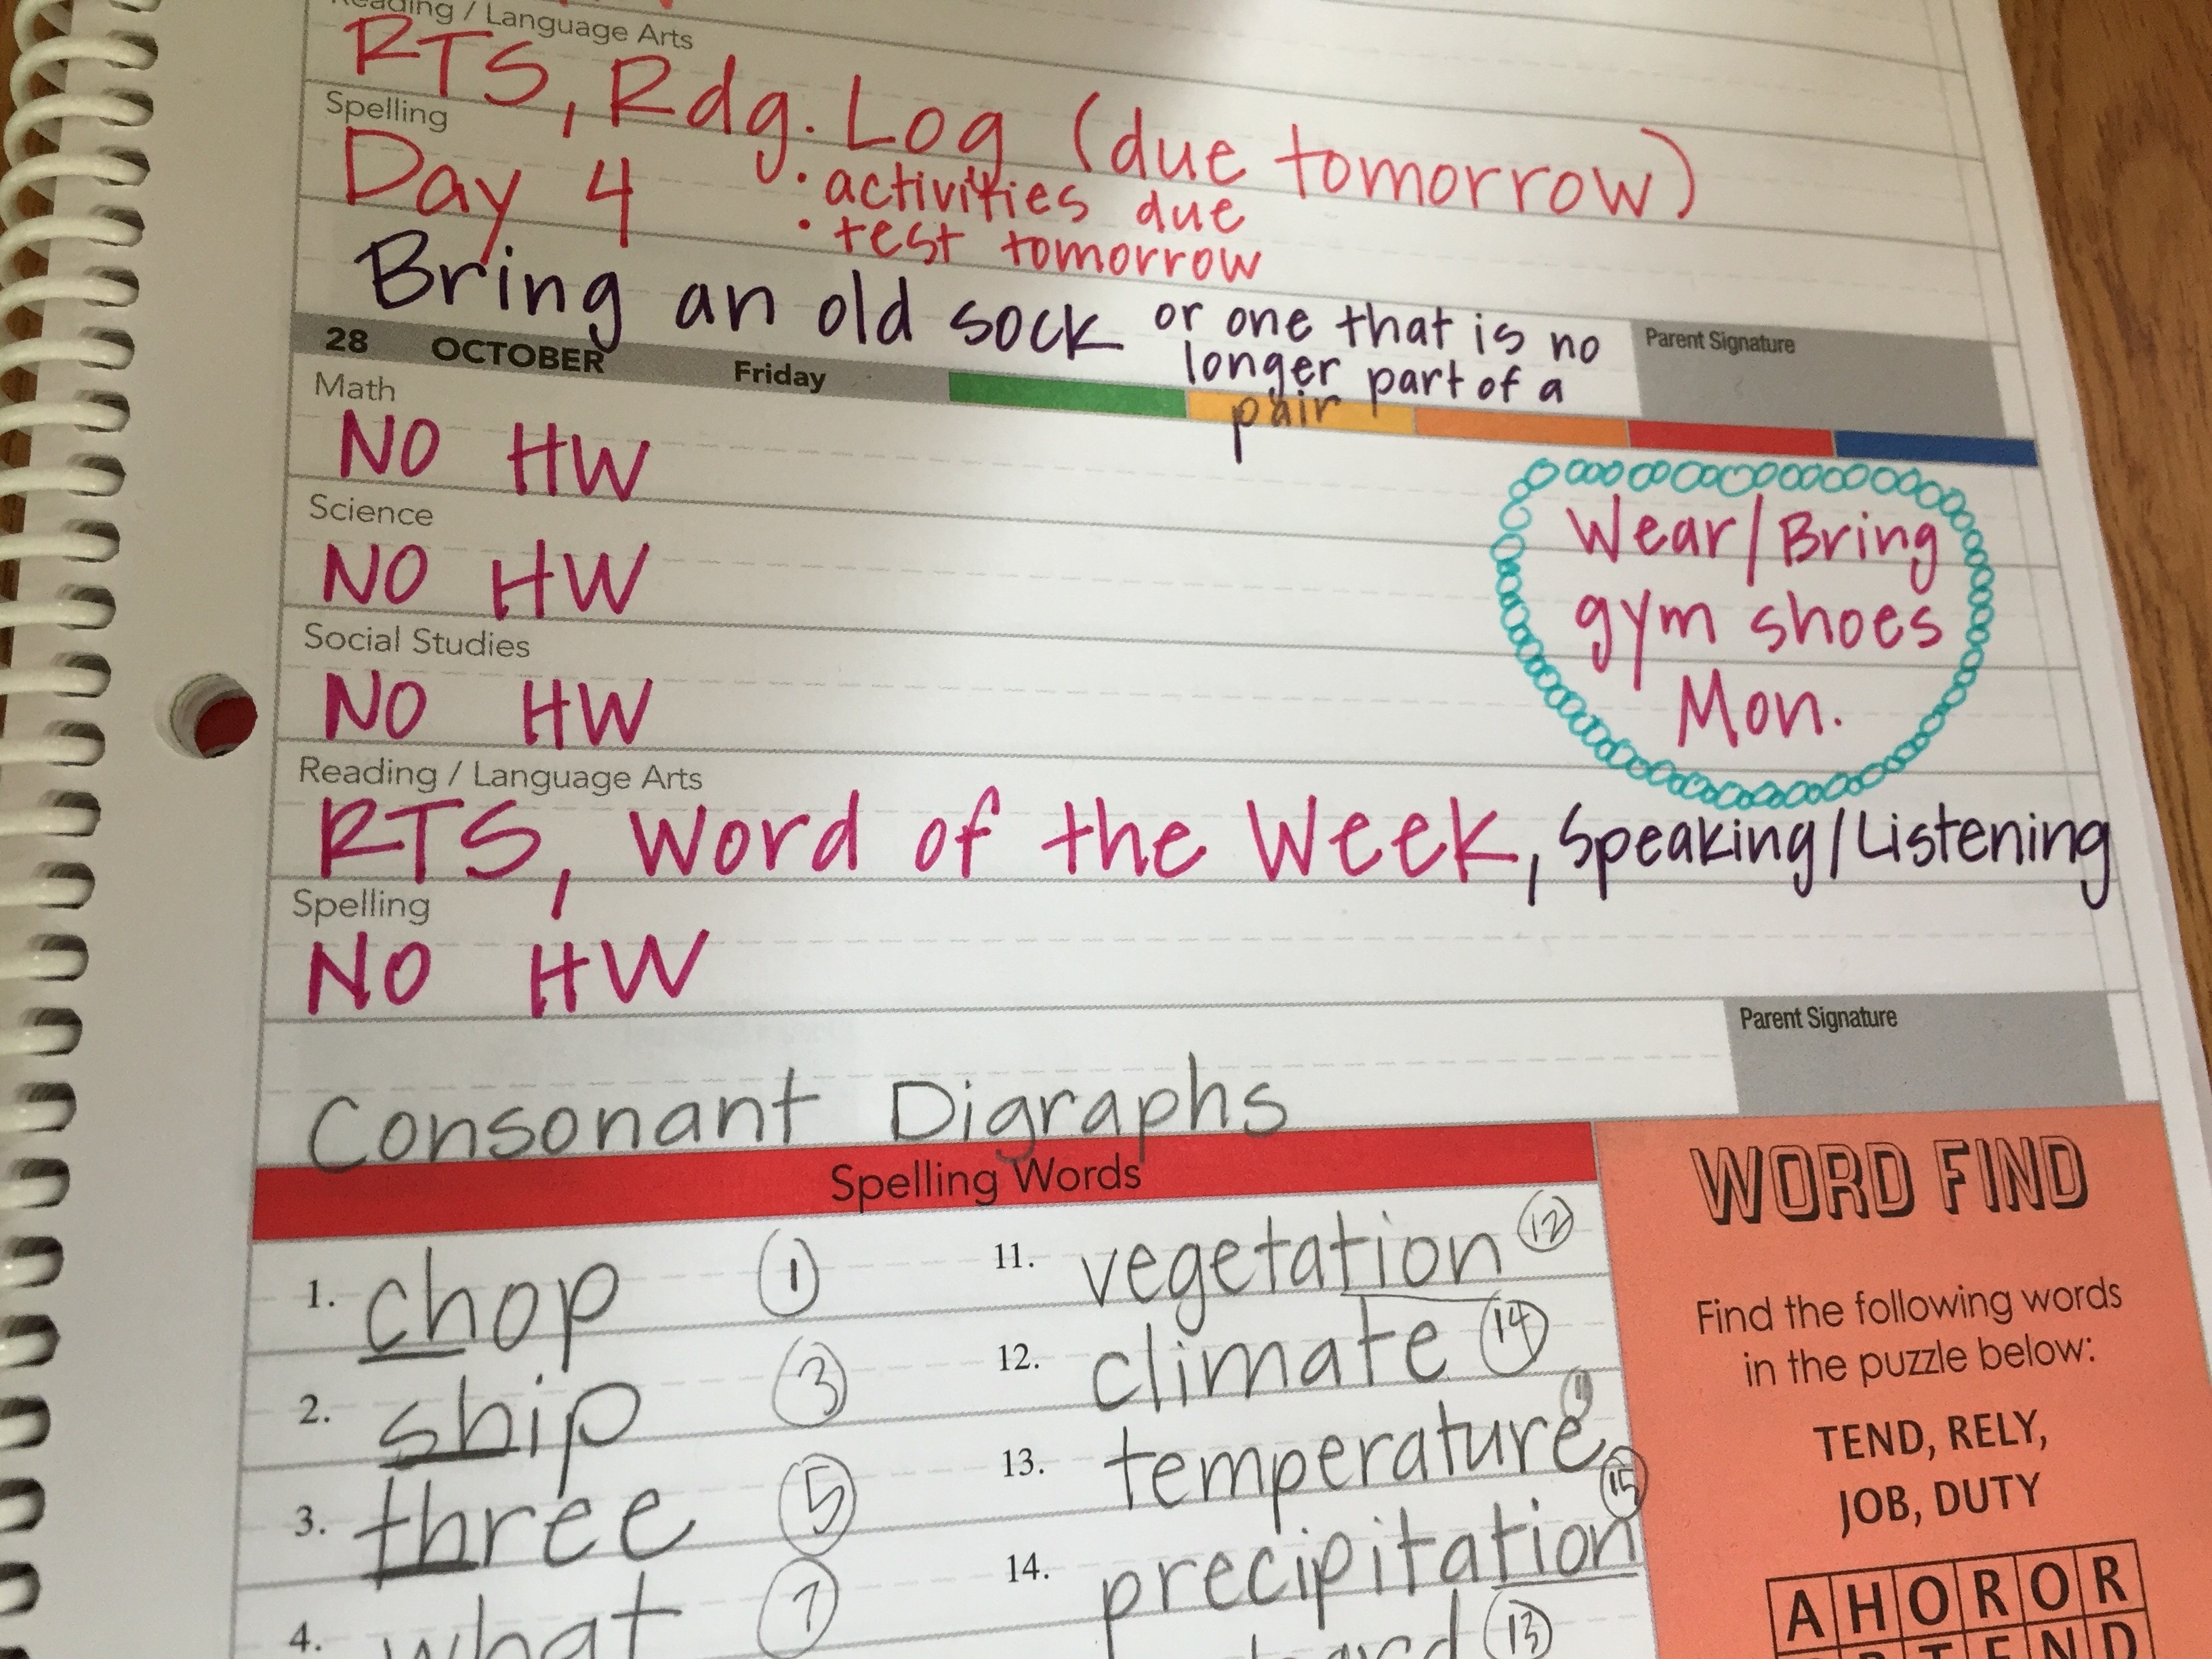 Reading / Language Arts
RTS, Rdg. Log (due tomorrow)
Spelling
Day 4 • activities due
• test tomorrow
Bring an old sock or one that is no
longer part of a
pair
Parent Signature
28 OCTOBER Friday
Math
NO HW
Science
NO HW
Social Studies
NO HW
Wear/Bring
gym shoes
Mon.
Reading / Language Arts
RTS, Word of the Week, Speaking/Listening
Spelling
NO HW
Parent Signature
Consonant Digraphs
Spelling Words
1. chop 1
2. ship 3
3. three 5
4. what 7
11. vegetation 12
12. climate 14
13. temperature 11
14. precipitation 15
13
WORD FIND
Find the following words
in the puzzle below:
TEND, RELY,
JOB, DUTY
A H O R O R
T E N D